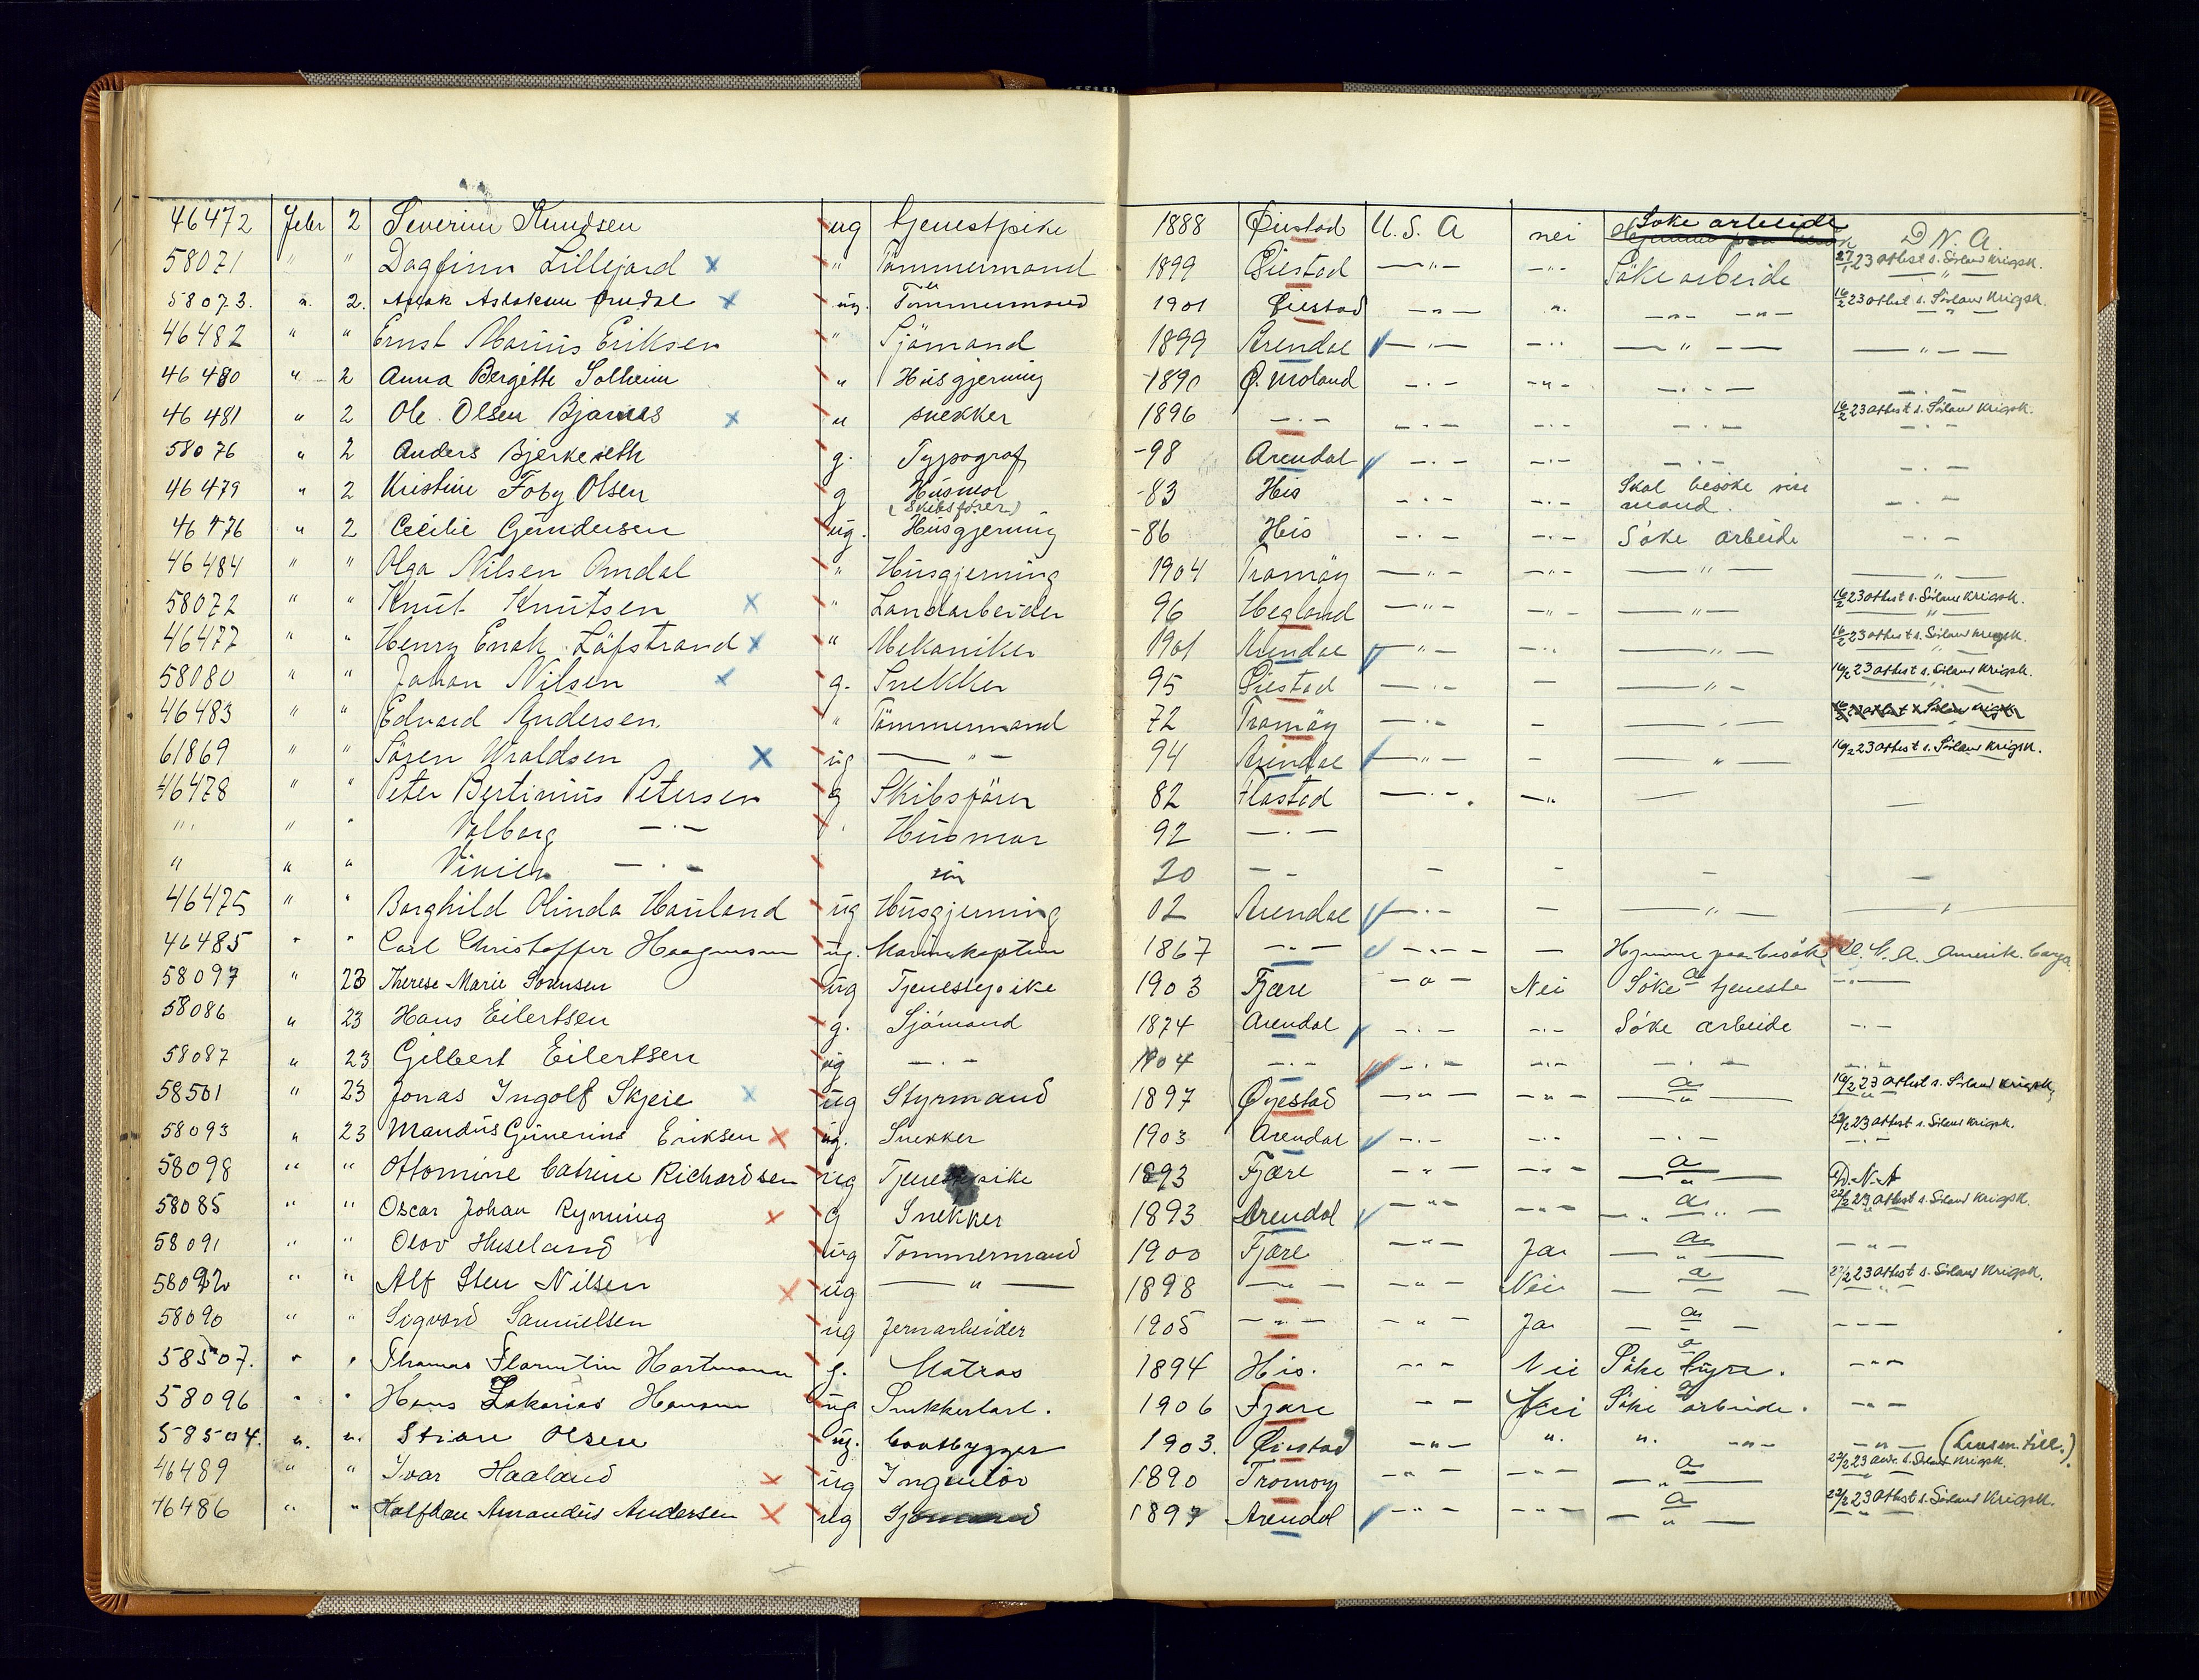 46472 Febr 2 Severine Knudsen ug tjenestpike 1888 Øiestad U. S. A nei Søke arbeide D N. A.
58071 " " Dagfinn Lillejord x " Tømmermand 1899 Øiestad —"— —"— Søke arbeide 27/1 23 attest s. Sörland Krigsk.
58073. " 2. Aslak Aslaksen x ug. Tömmermand 1901 Øiestad —"— ". —"— —"— 16/2 23 attest s. Sörland Krigsk.
46482 " " Ernst Marius Eriksen " Sjömand 1899 Arendal —"— —"— —"— —"—
46480 " 2 Anna Bergitte Solheim " Husgjerning 1890 Ø. Moland —"— —"— —"— —"—
46481 " 2 Ole Olsen Bjørnes x " snekker 1896 —"— —"— —"— —"— 16/2 23 attest s. Sörland Krigsk.
58076 " 2 Anders Bjerkeseth g. Typograf -98 Arendal —"— —"— —"— —"—
46479 " 2 Kristine Foby Olsen g Husmor (Skibsfører) -83 His —"— —"— Skal besöke sin mand. —"—
46476 " 2 Cecilie Gundersen ug. Husgjerning -86 His —"— —"— Søke arbeide —"—
46484 " " Olga Nilsen Omdal " Husgjerning 1904 Tromöy —"— —"— —"— —"—
58072 " " Knut Knutsen x " Landarbeider 96 Hegland —"— —"— —"— 16/2 23 attest s. Sörland Krigsk.
46477 " " Henry Enok Löfstrand x " Mekaniker 1901 Arendal —"— —"— —"— 16/2 23 attest s. Sörland Krigsk.
58080 " " Johan Nilsen x g. Snekker 95 Øiestad —"— — —"— 16/2 23 attest s. Sörland Krigsk.
46483 " " Edvard Andersen " Tömmermand 72 Tromöy —"— — —"—
61869 " " Sören Uraldsen x ug —"— 94 Arendal —"— — —"— 16/2 23 attest s. Sörland Krigsk.
46478 " " Peter Bertinius Petersen g Skibsförer 82 Flostad —"— —" — —
" " " Valborg —"— " Husmor 92 —"—
" " " —"— 20 — — — — — —
46475 " " Borghild Olinda Hauland ug Husgjerning 02 Arendal —"— — —"— —"—
46485 " " Carl Christoffer Haagensen ug. 1867 —"— —"— — Hjemme paa besök Amerik. Cargo
58097 " 23 Therese Marie Sørensen ug Tjenestepike 1903 Fjære —"— Nei Søke tjeneste —"—
58086 " 23 Hans Eilertsen g. Sjömand 1874 Arendal —"— —"— Søke arbeide —"—
58087 " 23 Gilbert Eilertsen ug —"— 1904 —"— —"— —"— —"— —"—
58501 " 23 Jonas Ingolf Skjeie x ug Styrmand 1897 Øyestad —"— —"— a —"— 16/2 23 attest s. Sörland Krigsk.
58093 " 23 Mandius Gunerius Eriksen x ug. Snekker 1903 Arendal —"— —"— —"— 22/2 23 attest s. Sörland Krigsk.
58098 " " Ottomine Catrine Richardsen ug Tjenestepike 1893 Fjære —"— —"— a —"— D. N. A
58085 " " Oscar Johan Rynning x g Snekker 1893 Arendal —"— —"— a —"— 22/2 23 attest s. Sörland Krigsk.
58091 " " Olav Huseland ug Tømmermand 1900 Fjære —"— Ja a —"— —"—
58092 " " Alf Sten Nilsen x ug —"— 1898 —"— —"— Nei a — 22/2 23 attest s. Sörland Krigsk.
58090 " " Sigvard Samuelsen ug Jernarbeider 1905 —"— —"— Ja a — —"—
58507. " " Thomas Hartmann g. Matros 1894 His. —"— Nei a Søke hyre. —"—
58096 " " Hans Zakarias Hansen ug Snekkerlærl. 1906 Fjære —"— Nei Søke a arbeide. —"—
58504. ". ". Stian Olsen ug. baatbygger 1903. Øiestad —"— ". ". —"— —"—
46489 " " Ivar Haaland x ug Ingeniör 1890 Tromøy —"— —"— a —"— 22/2 23 s. Sörland Krigsk.
46486 " " Halfdan Amandus Andersen x ug Sjömand 1897 Arendal —"— —"— a —"— 23/2 23 attest s. Sörland Krigsk.